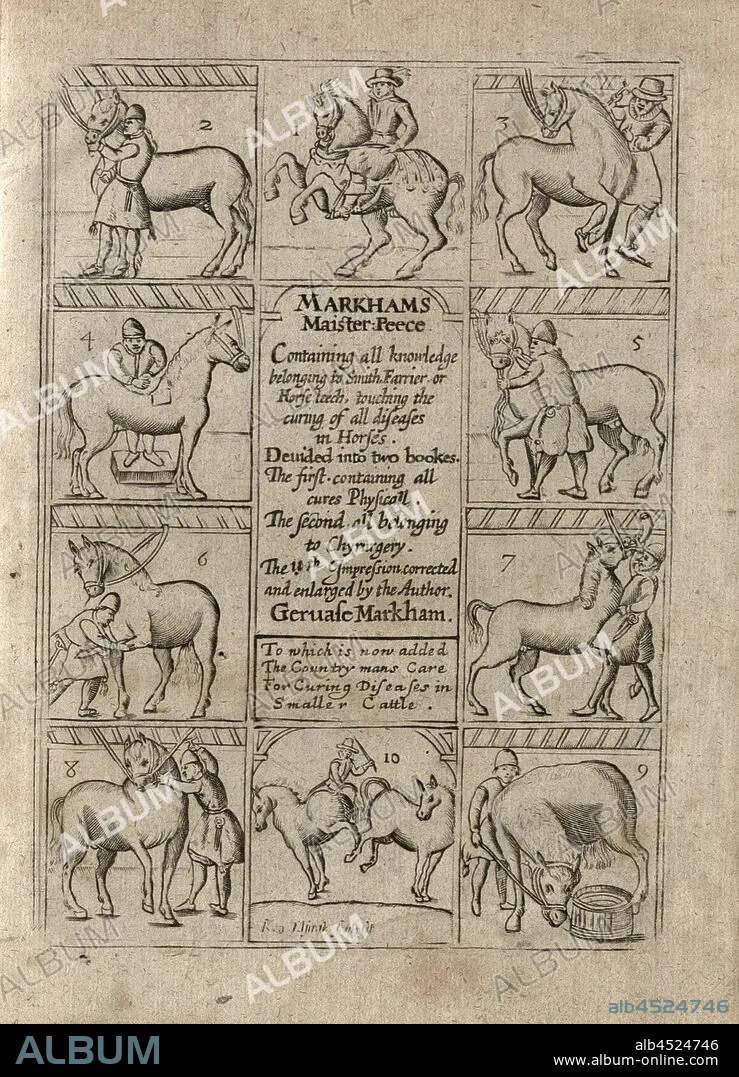 2
3
MARKHAMS
Maister:Peece
Containing all knowledge
belonging to Smith, Farrier, or
Horse leech, touching the
curing of all diseases
in Horses.
Deuided into two bookes.
The first containing all
cures Physicall.
The second all belonging
to Chyrurgery.
The Impression corrected
and enlarged by the Author.
Geruase Markham.
4
5
6
7
To which is now added
The Country mans Care
For Curing Diseases in
Smaller Cattle.
8
10
9
ALBUM
alb4524746
ALBUM
alb4524746
www.album-online.com